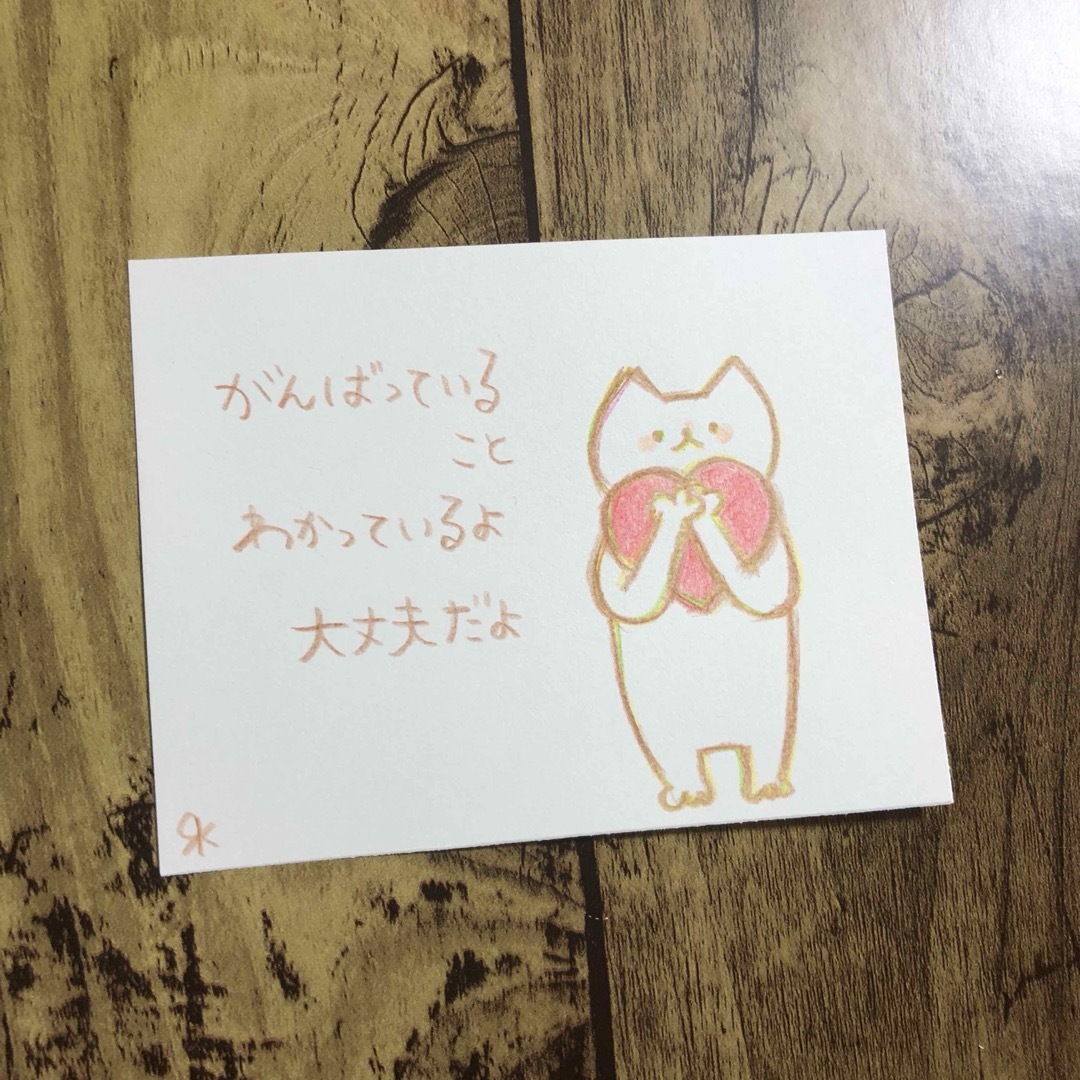 がんばっている
こと
わかっているよ
大丈夫だよ